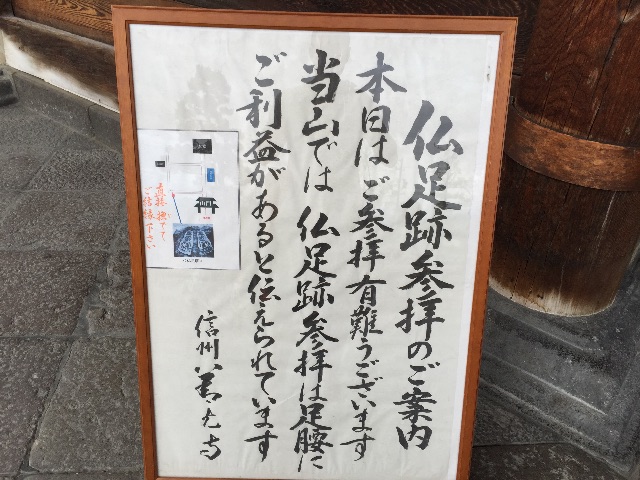 仏足跡参拝のご案内
本日はご参拝有難うございます
当山では仏足跡参拝は足腰に
ご利益があると伝えられています
信州 善光寺
直接撫でて
ご結縁下さい
山門